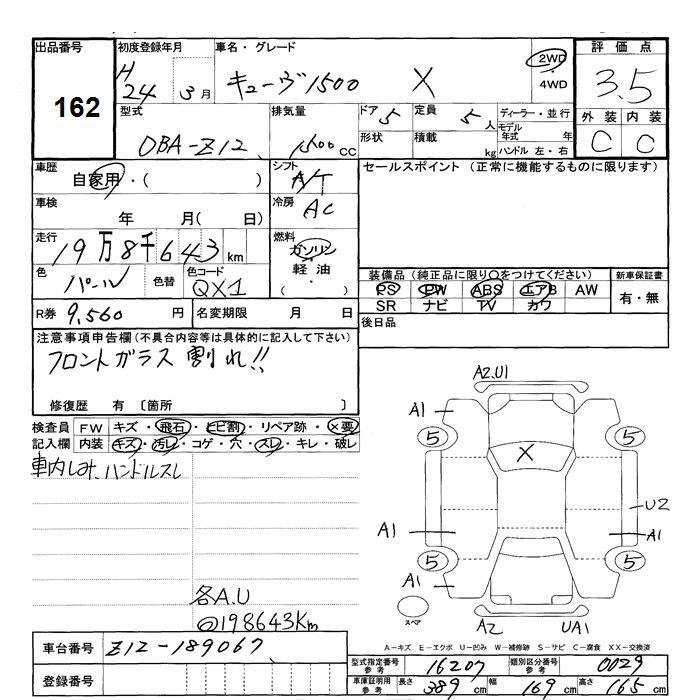 出品番号
162
初度登録年月
H
24 3月
車名・グレード
キューブ1500 X
2WD
・
4WD
評価点
3.5
外装 内装
C C
型式
DBA-Z12
排気量
1500 cc
ドア 5
定員 5人
ディーラー・並行
モデル
年式 年
形状
積載 kg
ハンドル 左・右
車歴
自家用・( )
シフト
A/T
セールスポイント (正常に機能するものに限ります)
車検
年 月( 日)
冷房
AC
走行
19万8千643 km
燃料
ガソリン
軽油
・
( )
色
パール
色替
色コード
QX1
装備品(純正品に限り○をつけてください)
新車保証書
PS PW ABS エアB AW
SR ナビ TV カワ
有・無
R券 9,560 円
名変期限 月 日
後日品
注意事項申告欄(不具合内容等は具体的に記入して下さい)
フロントガラス割れ!!
修復歴 有 〔箇所 〕
検査員 FW キズ・飛石・ヒビ割・リペア跡・×要
記入欄 内装 キズ・汚レ・コゲ・穴・スレ・キレ・破レ
車内しみ、ハンドルスレ
各A.U
@198643Km
A2.U1
A1
5 5
X
U2
A1 A1
5 5
A1
スペア
A2 UA1
A−キズ E−エクボ U−凹み W−補修跡 S−サビ C−腐食 XX−交換済
車台番号 Z12-189067
登録番号
型式指定番号
参考
16207
類別区分番号
参考
0029
車庫証明用
参考
長さ 389 cm 幅 169 cm 高さ 165 cm